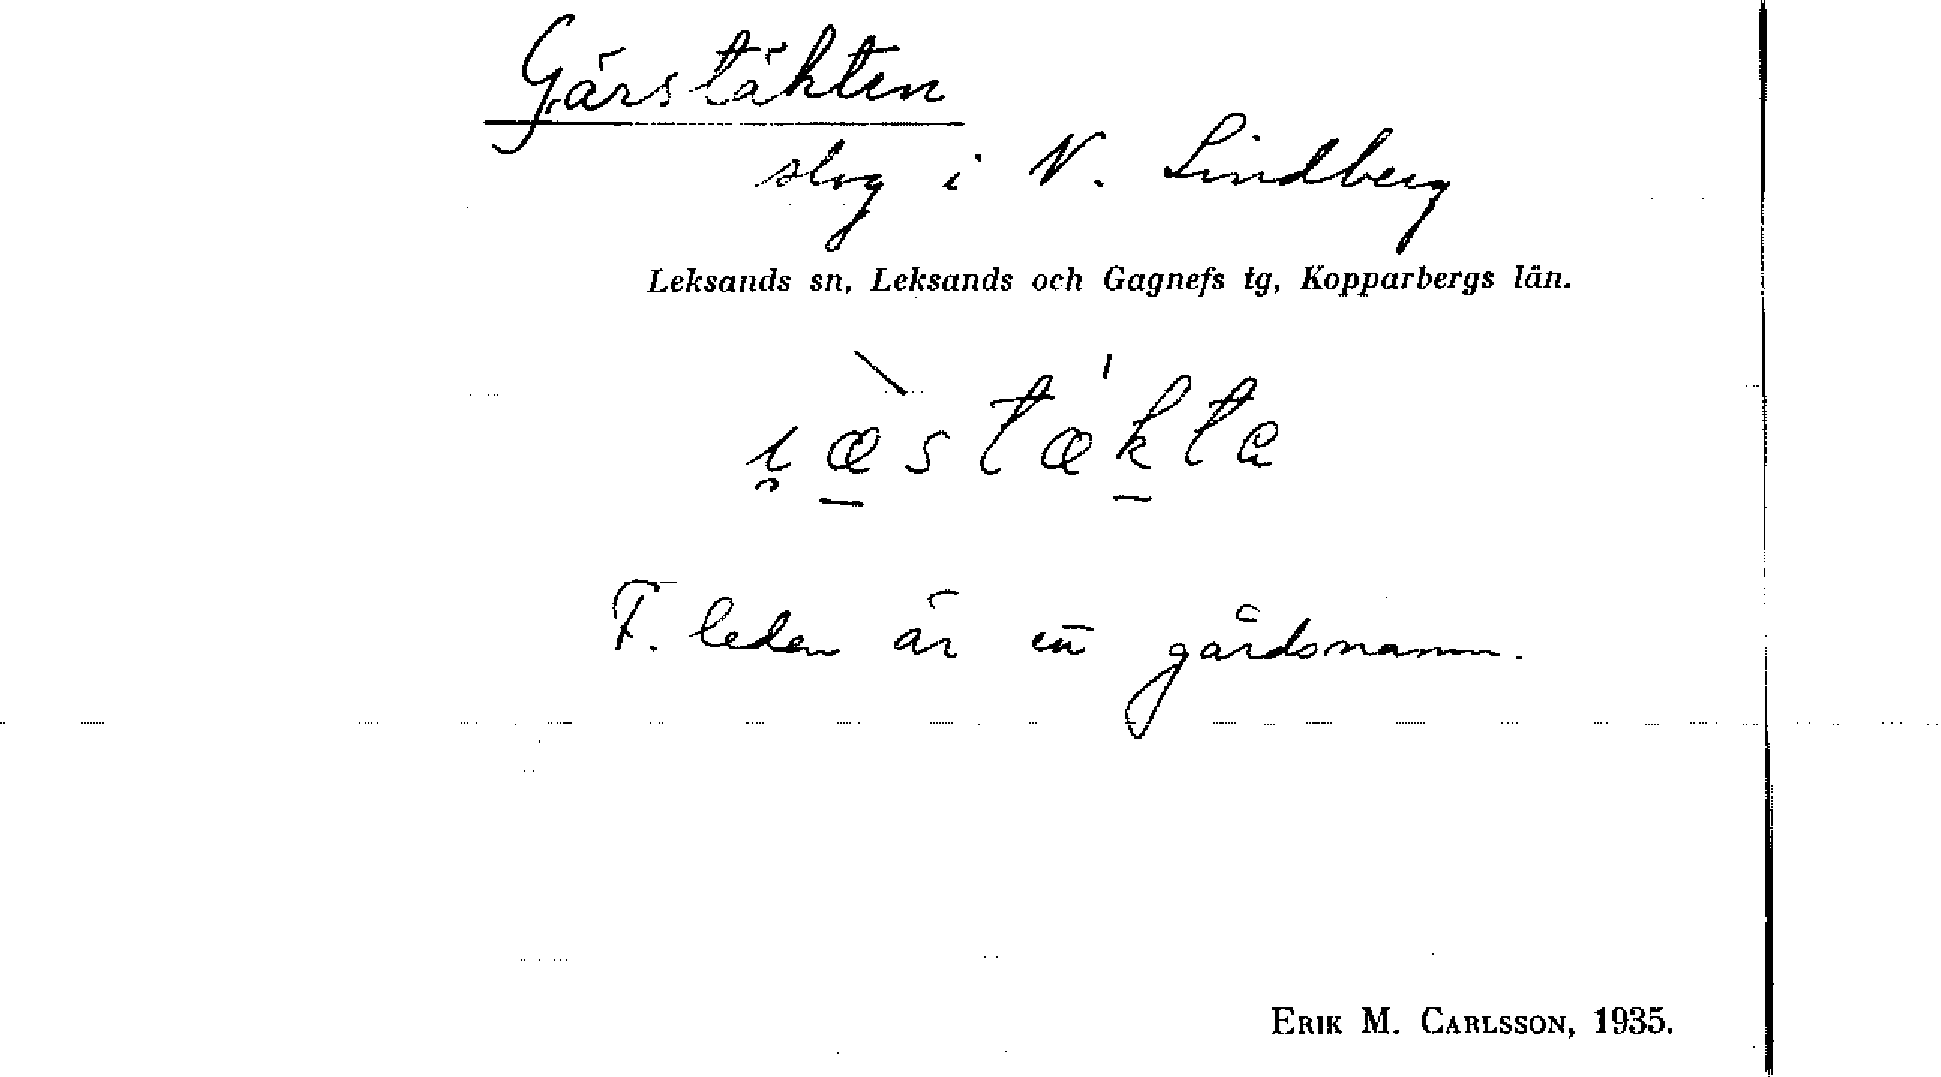 Gärstäkten
skog i N. Lindberg
Leksands sn, Leksands och Gagnefs tg, Kopparbergs län.
i̯æ̠̀stæ̍k̠ta
F. leden är ett gårdsnamn.
ERIK M. CARLSSON, 1935.